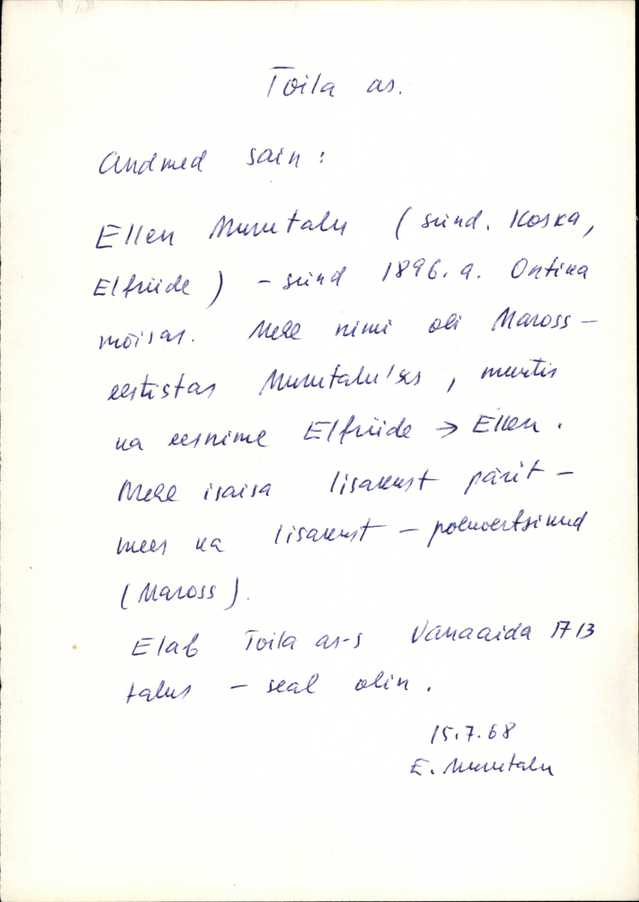 Toila as.
Andmed sain:
Ellen Murutalu (sünd. Koska,
Elfriide) – sünd 1896. a. Ontika
mõisas. Mehe nimi oli Maross –
eestistas Murutalu'ks, muutis
ka eesnime Elfriide → Ellen.
Mehe isaisa Iisakust pärit –
mees ka Iisakust – poluvertsikud
(Maross).
Elab Toila as-s Vanaaida 1713
talus – seal olin.
15.7.68
E. Murutalu